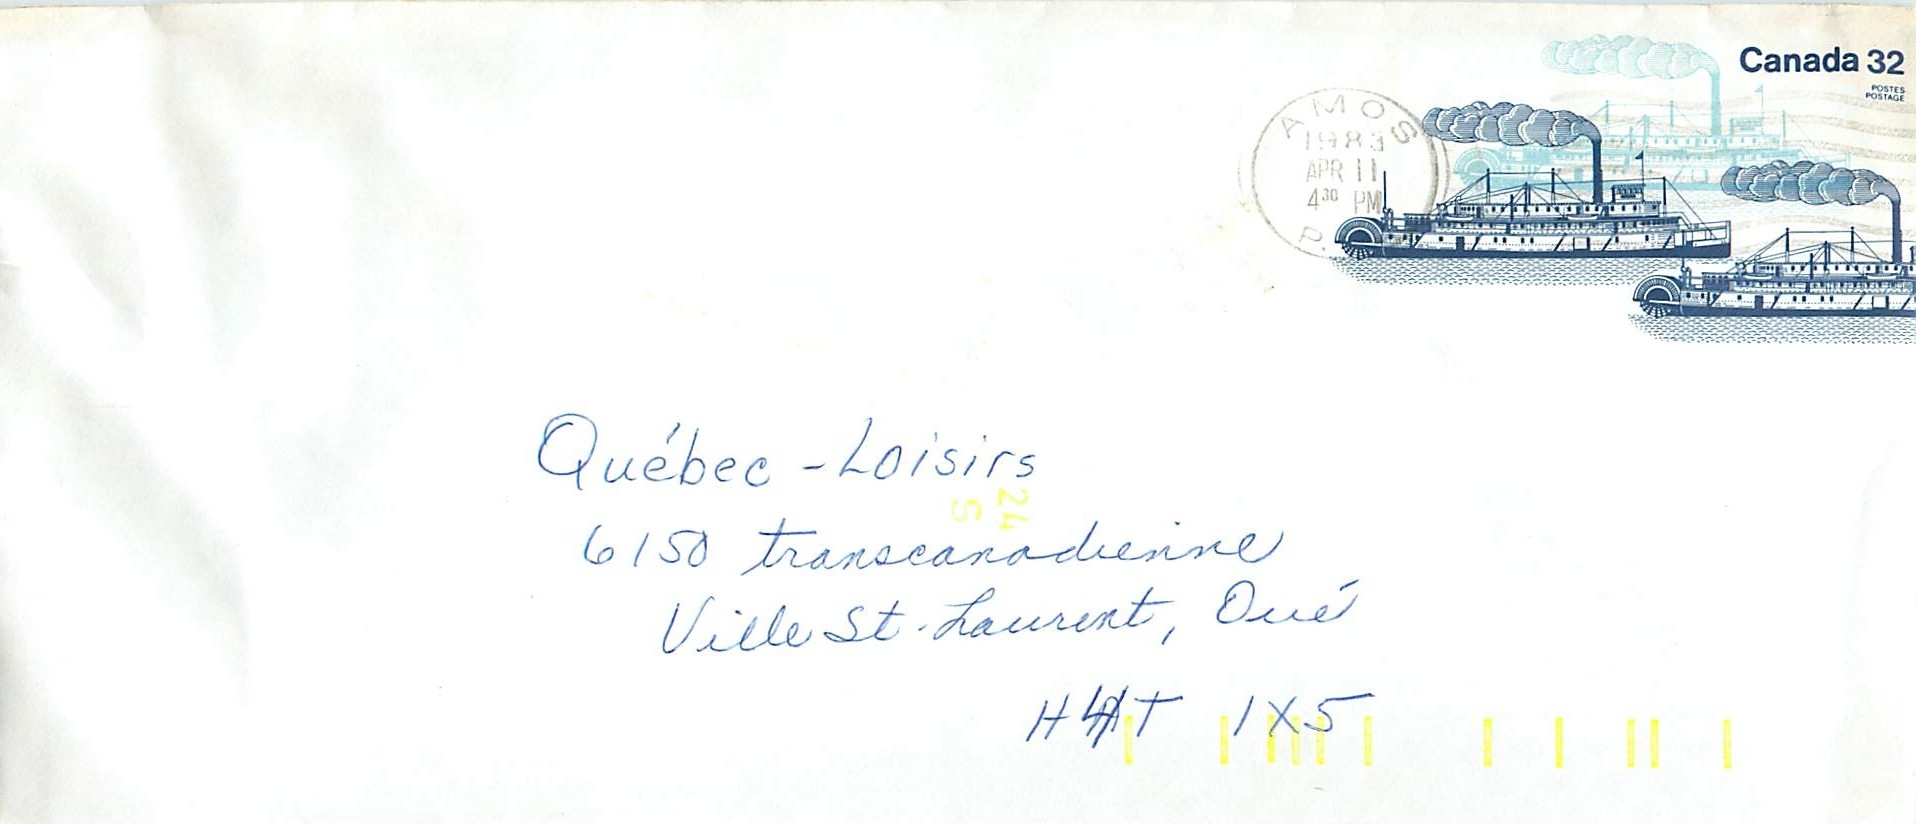 Canada 32
POSTES
POSTAGE
AMOS
1983
APR 11
4³⁰ PM
P.
Québec - Loisirs
24
S
6150 transcanadienne
Ville St-Laurent, Qué
H4T 1X5